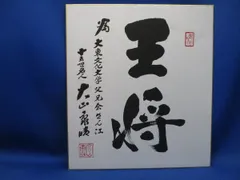 王将
為 大東文化大学父兄会さん江
十五世名人 大山康晴